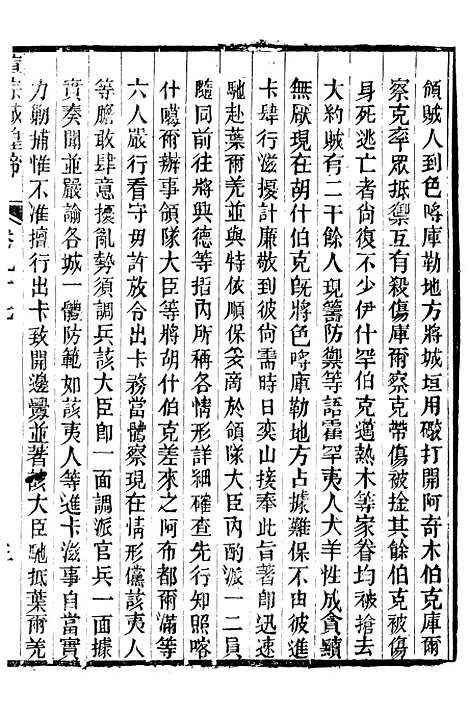 領賊人到色呼庫勒地方將城垣用礮打開阿奇木伯克庫爾
察克率眾抵禦互有殺傷庫爾察克帶傷被捦其餘伯克被傷
身死逃亡者尚復不少伊什罕伯克邁熱木等家眷均被搶去
大約賊有二千餘人現籌防禦等語霍罕夷人犬羊性成貪黷
無厭現在胡什伯克旣將色呼庫勒地方占據難保不由彼進
卡肆行滋擾計廉敬行抵喀什尚需時日奕山接奉此旨著卽迅速
馳赴葉爾羌並與特依順保妥商於領隊大臣內酌派一二員
隨同前往將與德等指內所稱各情形詳細確查先行行知照喀
什噶爾辦事領隊大臣等將胡什伯克差來之阿布都爾滿等
六人嚴行看守毋許放令出卡務當體察現在情形儻該夷人
等膽敢肆意擾亂勢須調兵該大臣卽一面調派官兵一面據
實奏聞並嚴諭各城一體防範如該夷人等進卡滋事自當實
力勦捕惟不准擅行出卡致開邊釁並著該大臣馳抵葉爾羌
宣宗成皇帝 卷九十七 三